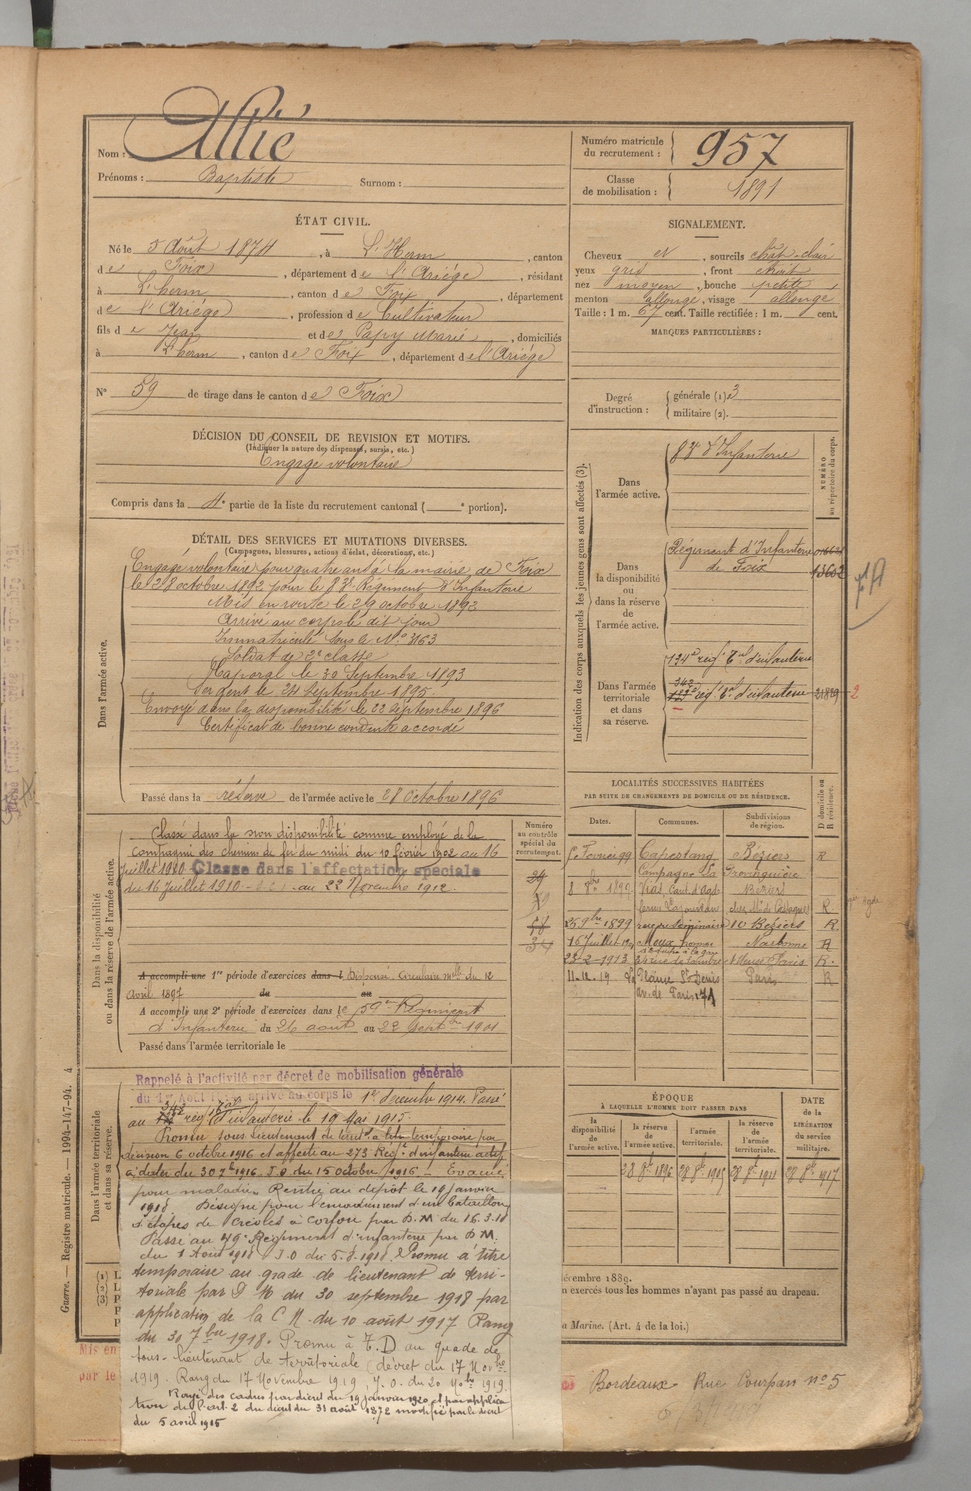 Nom : Allié
Prénoms : Baptiste Surnom :
Numéro matricule du recrutement : 957
Classe de mobilisation : 1891
ÉTAT CIVIL.
Né le 5 Août 1874, à L'Herm, canton
de Foix, département de l'Ariége, résidant
à L'herm, canton de Foix, département
de l'Ariége, profession de Cultivateur
fils de Jean et de Papy Marie, domiciliés
à L'herm, canton de Foix, département de l'Ariége
N° 59 de tirage dans le canton de Foix
SIGNALEMENT.
Cheveux et, sourcils chât-clair
yeux gris, front étroit
nez moyen, bouche petite
menton allongé, visage allongé
Taille : 1 m. 67 cent. Taille rectifiée : 1 m. cent.
MARQUES PARTICULIÈRES :
Degré d'instruction : générale (1) 3
militaire (2).
DÉCISION DU CONSEIL DE REVISION ET MOTIFS.
(Indiquer la nature des dispenses, sursis, etc.)
Engagé volontaire
Compris dans la 4e partie de la liste du recrutement cantonal ( e portion).
DÉTAIL DES SERVICES ET MUTATIONS DIVERSES.
(Campagnes, blessures, actions d'éclat, décorations, etc.)
Dans l'armée active.
Engagé volontaire pour quatre ans à la mairie de Foix
le 28 octobre 1892 pour le 83e Régiment d'Infanterie
Mis en route le 29 octobre 1892
Arrivé au corps le dit jour
Immatriculé sous le N° 4163
Soldat de 2e classe
Caporal le 30 Septembre 1893
Sergent le 24 Septembre 1895
Envoyé dans la disponibilité le 22 Septembre 1896
Certificat de bonne conduite accordé
Passé dans la réserve de l'armée active le 28 Octobre 1896
Indication des corps auxquels les jeunes gens sont affectés (3).
NUMÉRO au répertoire du corps.
Dans l'armée active.
83e d'Infanterie
Dans la disponibilité ou dans la réserve de l'armée active.
Régiment d'Infanterie
de Foix
Dans l'armée territoriale et dans sa réserve.
134e rég. Tal d'infanterie
342
rég. Tal d'infanterie
2
LOCALITÉS SUCCESSIVES HABITÉES
PAR SUITE DE CHANGEMENTS DE DOMICILE OU DE RÉSIDENCE.
Dates. Communes. Subdivisions de région. D domicile ou R résidence.
Capestang Béziers R
8 1899 Béziers
R
25 9bre 1899 10 Béziers R
15 Juillet Narbonne R
23-2-1913 Paris R.
11-12-19 Plaine St Denis Paris R
av. de Paris 174
Dans la disponibilité ou dans la réserve de l'armée active.
Numéro au contrôle spécial du recrutement.
Classé dans la non disponibilité comme employé de la
Compagnie des chemins de fer du midi du 10 février 1902 au 16
Juillet 1910 Classé dans l'affectation spéciale
du 16 Juillet 1910 au 22 Novembre 1912
A accompli une 1re période d'exercices dans l Dispensé. Circulaire mlle du 12
Avril 1897 du au
A accompli une 2e période d'exercices dans le 59e Régiment
d'Infanterie du 26 août au 22 Septbre 1901
Passé dans l'armée territoriale le
Dans l'armée territoriale et dans sa réserve.
Rappelé à l'activité par décret de mobilisation générale
du 1er Août arrivé au corps le 1er décembre 1914. Passé
au 342 rég. d'Infanterie le 19 Mai 1915.
Promu sous-lieutenant à titre temporaire par
décision 6 octobre 1916 et affecté au 273 Régt d'infanterie
à dater du 30 7bre 1916. J.O. du 15 octobre 1916. Evacué
pour maladie. Rentré au dépôt le 19 janvier
1918 Désigné pour l'encadrement d'un bataillon
d'étapes de Créoles à Corfou par D.M du 16.3.18
Passé au 49e Régiment d'infanterie par D.M.
du 1 Août 1918 J.O du 5.8.1918 Promu à titre
temporaire au grade de lieutenant de terri-
toriale par D M du 30 septembre 1918 par
application de la C M du 10 août 1917 Rang
du 30 7bre 1918. Promu à T.D au grade de
sous-lieutenant de territoriale (décret du 17 Novbre
1919. Rang du 17 Novembre 1919. J.O. du 20 Nobre 1919.
Rayé des cadres par décret du 19 janvier 1920 et par applica
tion de l'art. 2 du décret du 31 août 1878 modifié par le décret
du 5 avril 1916
ÉPOQUE À LAQUELLE L'HOMME DOIT PASSER DANS
la disponibilité de l'armée active. la réserve de l'armée active. l'armée territoriale. la réserve de l'armée territoriale.
DATE de la LIBÉRATION du service militaire.
28 8bre 1896 28 8bre 1905 28 8bre 1911 28 8bre 1917
décembre 1889.
n exercés tous les hommes n'ayant pas passé au drapeau.
a Marine. (Art. 4 de la loi.)
Guerre. — Registre matricule. — 1994-147-94. 4
Mis en
par le
Bordeaux Rue Courpon n° 5